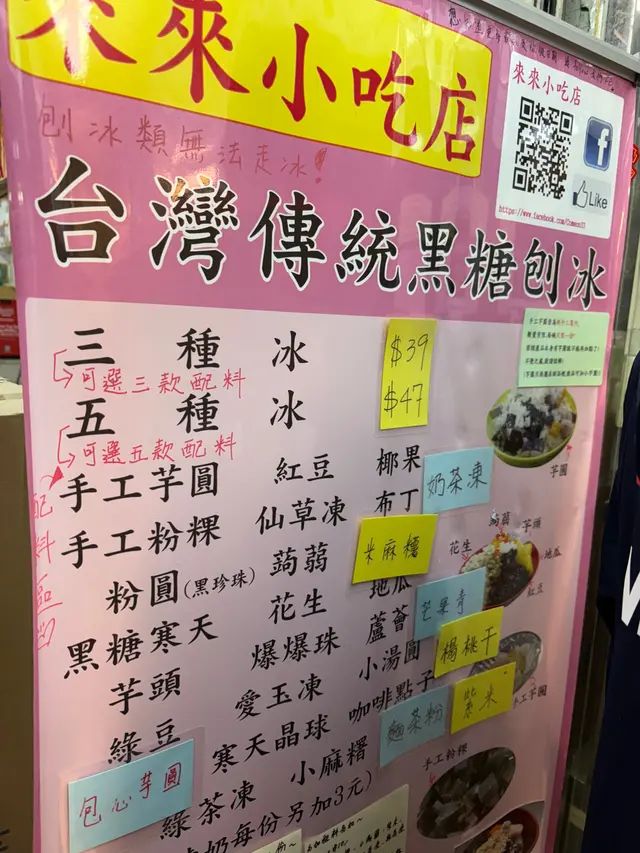 來來小吃店
刨冰類無法走冰!
台灣傳統黑糖刨冰
來來小吃店
Like
三種冰
$39
可選三款配料
五種冰
$47
可選五款配料
配料區
手工芋圓
紅豆
椰果
奶茶凍
手工粉粿
仙草凍
布丁
粉圓(黑珍珠)
蒟蒻
米麻糬
黑糖寒天
花生
地瓜
芒果青
芋頭
爆爆珠
蘆薈
楊桃干
綠豆
愛玉凍
小湯圓
紫米
包心芋圓
寒天晶球
咖啡點子
麵茶粉
綠茶凍
小麻糬
奶每份另加3元)
芋圓
蒟蒻
芋頭
花生
地瓜
紅豆
手工芋圓
手工粉粿